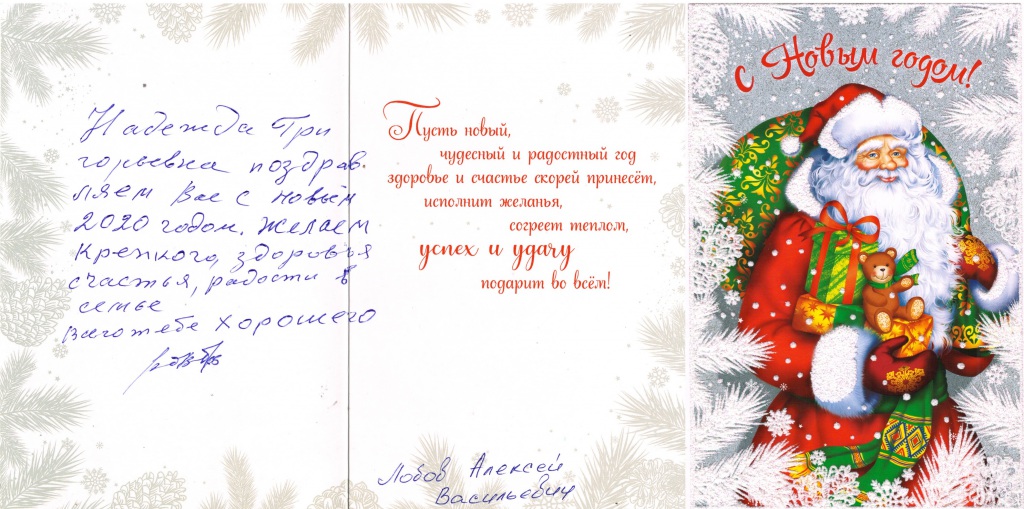 Надежда Гри
горьевна поздрав.
ляем Вас с Новым
2020 годом. Желаем
Крепкого, здоровья
счастья, радости в
семье
Всего тебе Хорошего
Пусть новый,
чудесный и радостный год
здоровье и счастье скорей принесёт,
исполнит желанья,
согреет теплом,
успех и удачу
подарит во всём!
Лобов Алексей
Васильевич
с Новым годом!